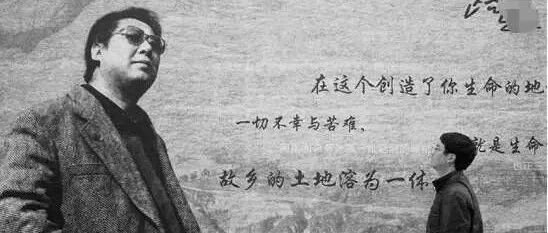 在这个创造了你生命的地
一切不幸与苦难、
就是生命
故乡的土地溶为一体